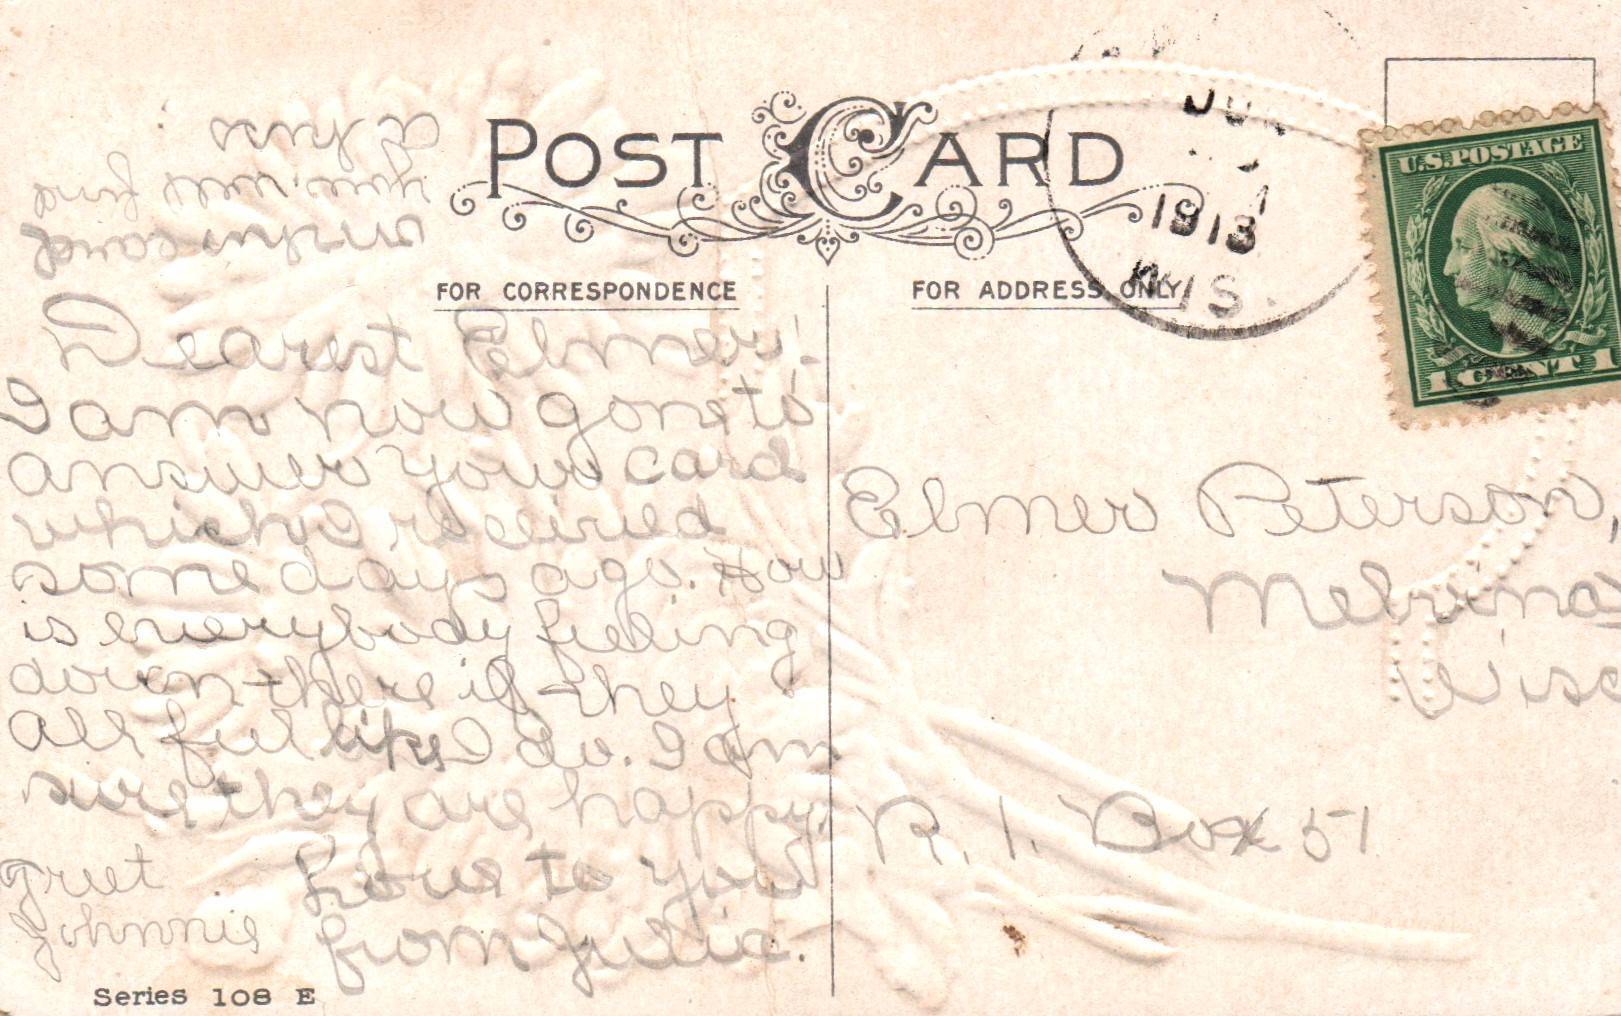 POST CARD
FOR CORRESPONDENCE
FOR ADDRESS ONLY
JUN
1913
WIS.
U.S. POSTAGE
1 CENT 1
Dearest Elmer:-
I am now gone to
answer your card
which I received
some days ago. How
is everybody feeling
down there if they
all feel like I do. I am
sure they are happy.
Love to you
from Julia.
Greet
Johnnie
Elmer Peterson,
Melvina
Wisc
R. 1. Box 51
Series 108 E